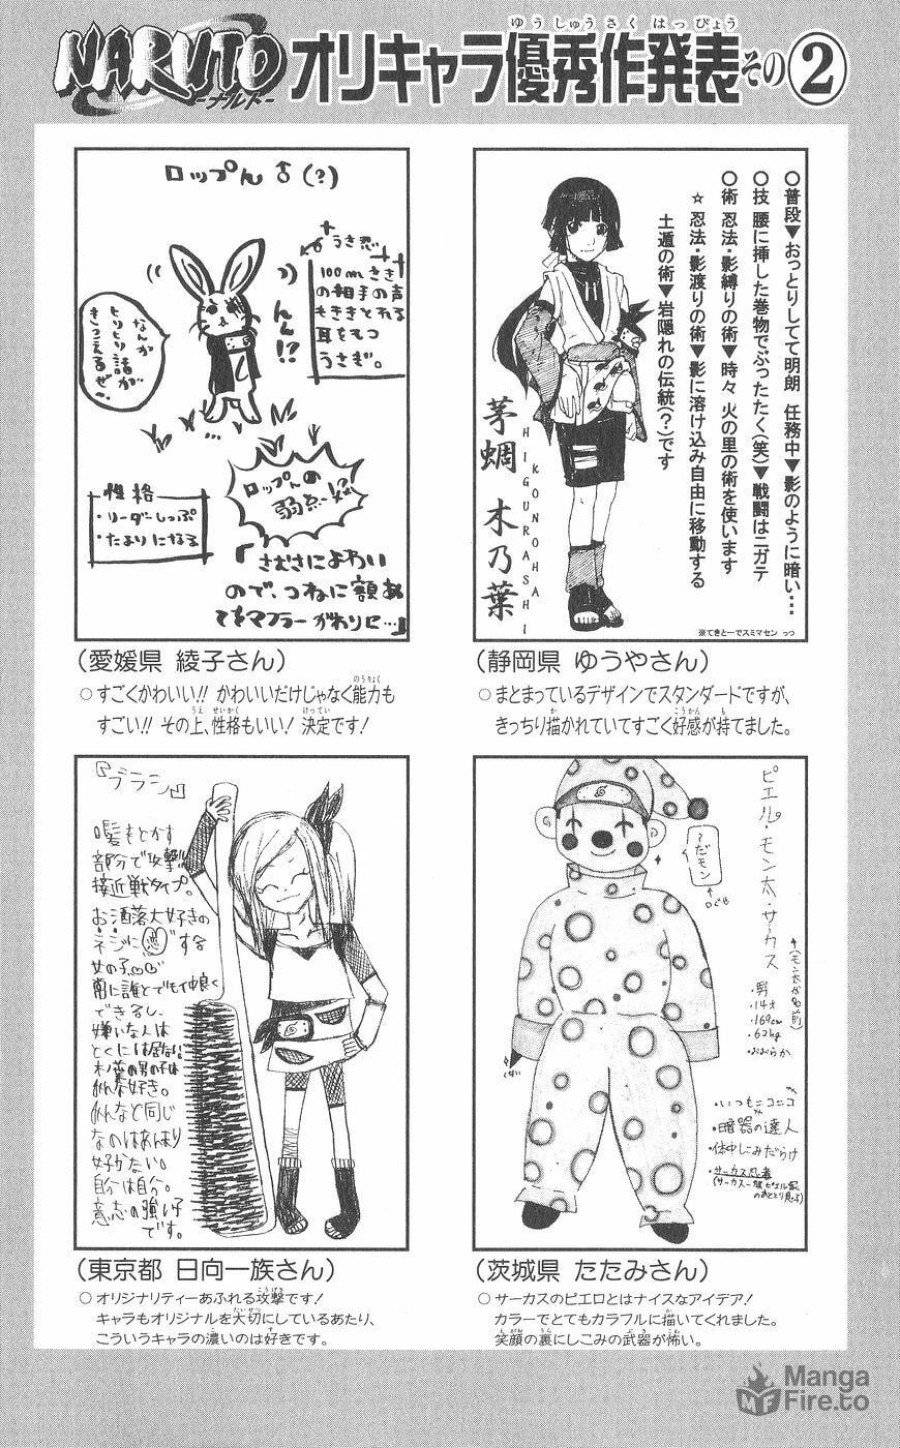 NARUTO
-ナルト-
オリキャラ優秀作発表その②
ゆうしゅうさくはっぴょう
ロップん♂(?)
うさ忍
100mさき
の相手の声
もききとれる
耳をもつ
うさぎ。
んん!?
なんか
ヒソヒソ話が
きこえるぜ〜
性格
・リーダーしっぷ
・たよりになる
ロップんの
弱点…!!
「さむさによわい
ので、つねに額あ
てをマフラーがわりに…」
(愛媛県 綾子さん)
○すごくかわいい!! かわいいだけじゃなく能力も
すごい!! その上、性格もいい! 決定です!
○普段▼おっとりしてて明朗 任務中▼影のように暗い…
○技 腰に挿した巻物でぶったたく(笑)▼戦闘はニガテ
○術 忍法・影縛りの術▼時々 火の里の術を使います
☆ 忍法・影渡りの術▼影に溶け込み自由に移動する
土遁の術▼岩隠れの伝統(?)です
茅蜩 木乃葉
HIGURASHI
KONOHA
※てきとーでスミマセン っっ
(静岡県 ゆうやさん)
○まとまっているデザインでスタンダードですが、
きっちり描かれていてすごく好感が持てました。
『ブラシ』
髪もとかす
部分で攻撃!!
接近戦タイプ。
お洒落大好きの
ネジに恋する
女の子
常に誰とでも仲良く
できるし、
嫌いな人は
とくには居ない。
木ノ葉の男の子は
みんな好き。
みんなと同じ
なのはあんまり
好かない。
自分は自分。
意志の強い子
です。
(東京都 日向一族さん)
○オリジナリティーあふれる攻撃です!
キャラもオリジナルを大切にしているあたり、
こういうキャラの濃いのは好きです。
ピエル・モン太・サーカス
〜だモン
↑口ぐせ
↑(モン太が名前)
・男
・14才
・160cm
・62kg
・おおらか
・いつもニコニコ
・暗器の達人
・体中しこみだらけ
・サーカス忍者
(茨城県 たたみさん)
○サーカスのピエロとはナイスなアイデア!
カラーでとてもカラフルに描いてくれました。
笑顔の裏にしこみの武器が怖い。
Manga
Fire.to
MF